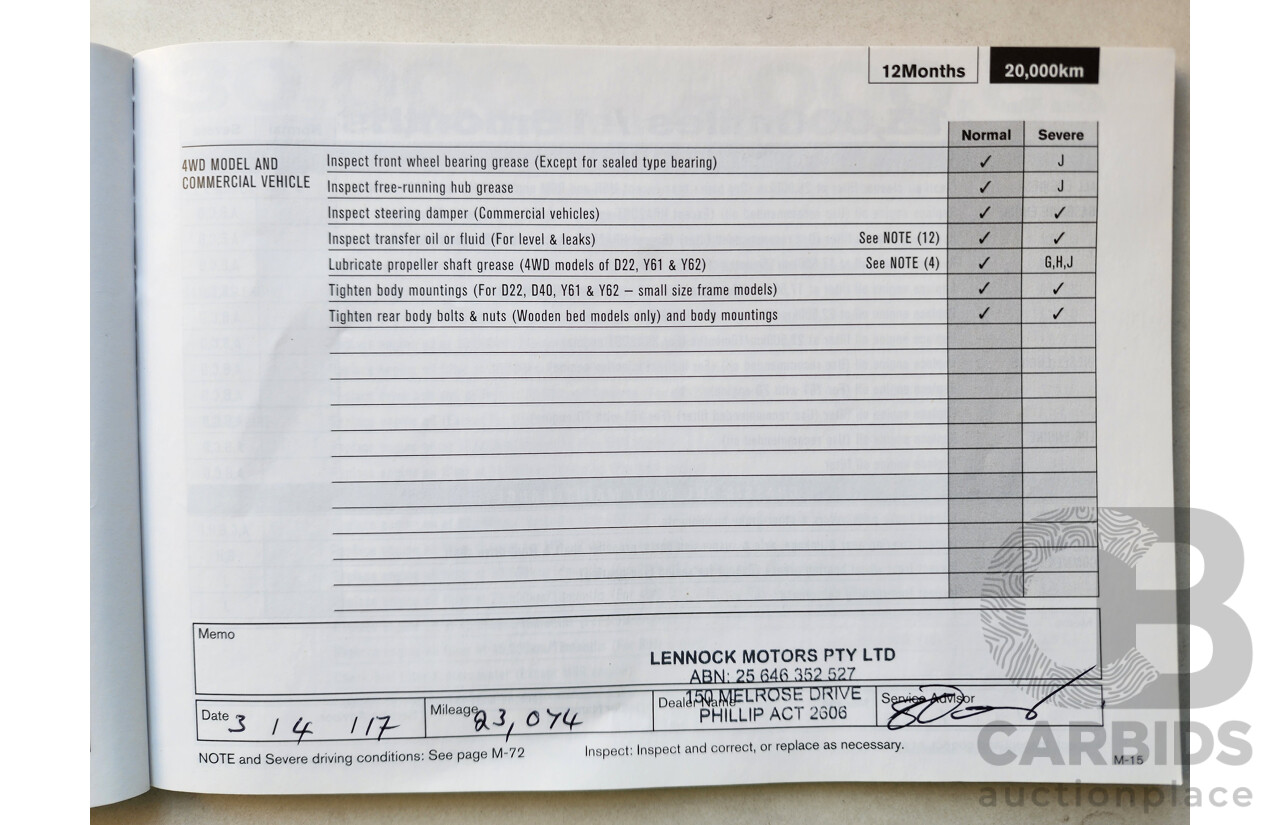 12Months 20,000km
Normal Severe
4WD MODEL AND COMMERCIAL VEHICLE
Inspect front wheel bearing grease (Except for sealed type bearing) ✓ J
Inspect free-running hub grease ✓ J
Inspect steering damper (Commercial vehicles) ✓ ✓
Inspect transfer oil or fluid (For level & leaks) See NOTE (12) ✓ ✓
Lubricate propeller shaft grease (4WD models of D22, Y61 & Y62) See NOTE (4) ✓ G,H,J
Tighten body mountings (For D22, D40, Y61 & Y62 – small size frame models) ✓ ✓
Tighten rear body bolts & nuts (Wooden bed models only) and body mountings ✓ ✓
Memo
LENNOCK MOTORS PTY LTD
ABN: 25 646 352 527
150 MELROSE DRIVE
PHILLIP ACT 2606
Date 3 / 4 / 17
Mileage 23,074
Dealer Name
Service Advisor
NOTE and Severe driving conditions: See page M-72
Inspect: Inspect and correct, or replace as necessary.
M-15
CB
CARBIDS
auctionplace